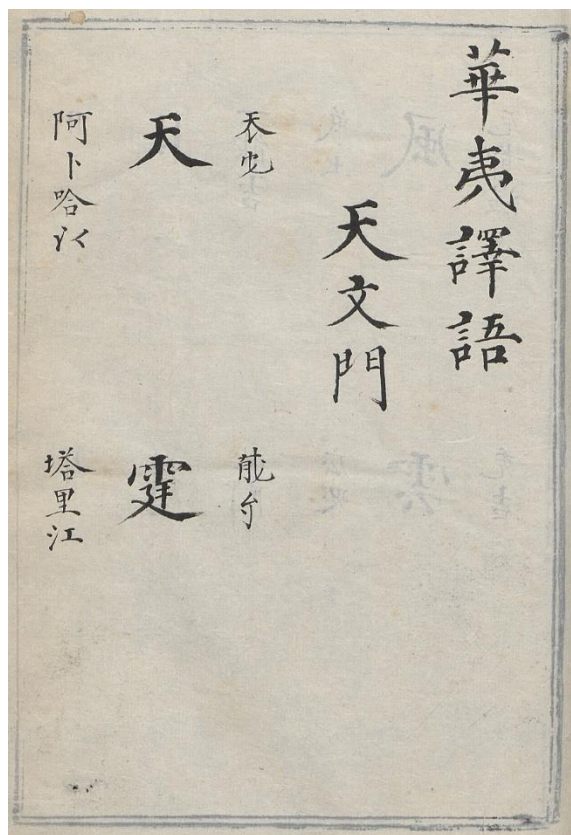 華夷譯語
天文門
天
阿卜哈以
霆
塔里江